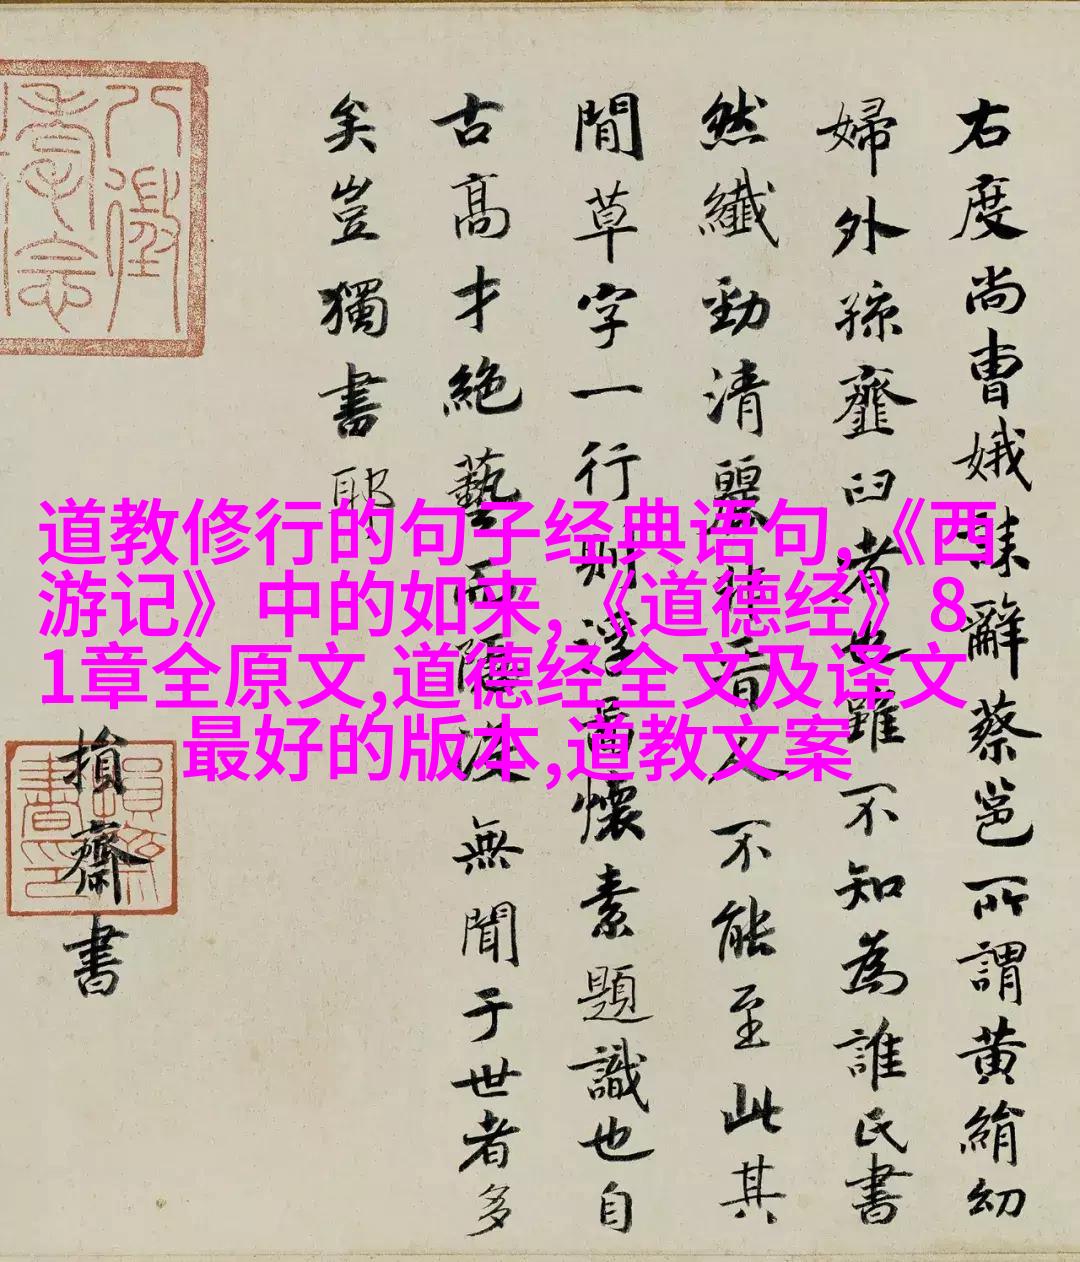 右度尚曹娥誄辭蔡邕所謂黃絹幼
婦外孫韲臼者也雖不知為誰氏書
然纖勁清麗非晉人不能至此其
間草字一行則浮圖懷素題識也自
古高才絕藝而隱沒無聞于世者多
矣豈獨書耶
損齋書
道教修行的句子经典语句,《西
游记》中的如来,《道德经》8
1章全原文,道德经全文及译文
最好的版本,道教文案